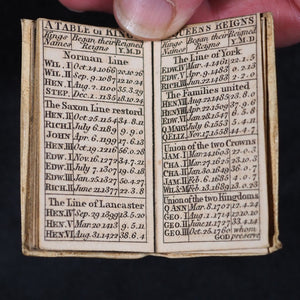 A TABLE of KINGS
Kings Began their Reigned
Names Reigns Y.M.D
Norman Line
WIL. I Oct.14.1066 20.10.26
WIL. II Sep. 9.1087 12.10.24
HEN. I Aug. 2.1100 35.3.29
STEP. Dec. 1.1135 18.10.24
The Saxon Line restord
HEN. II Oct.25.1154
RICH. I July 6.1189 9.9.0
JOHN. Apr. 6.1199 17.6.13
HEN. III Oct.19.1216 56.0.28
EDW. I Nov.16.1272 34.7.21
EDW. II July 7.1307 19.6.18
EDW. III Jan.25.1327 50.4.27
RICH. II June.21.1377 22.3.8
The Line of Lancaster
HEN. IV Sep.29.1399 13.5.20
HEN. V Mar.20.1413 9.5.11
HEN. VI Aug.31.1422 38.6.4
QUEENS REIGNS
Kings Began their Reigned
Names Reigns Y.M.D
The Line of York
EDW. IV Mar.4.1461
EDW. V Apr.9.1483
RIC. III June.22.1483
The Families united
HEN. VII Aug.22.1485
HEN. VIII Apr.22.1509
EDW. VI Jan.28.1547
Q.MA. July 6.1553
Q.ELIZ. Nov.17.1558 44.4.7
Union of the two Crowns
JAM. I Mar.24.1603 22.0.3
CHA. I Mar.27.1625 23.10.3
CHA. II Jan.30.1649 36.0.7
JAM. II Feb.6.1685 4.0.7
WIL.&M Feb.13.1689 13.0.23
Union of the two Kingdoms
Q.ANN Mar.8.1702 12.4.24
GEO. I Aug.1.1714 12.10.10
GEO. II June.11.1727
GEO. III Oct.25.1760 whom
GOD preserve